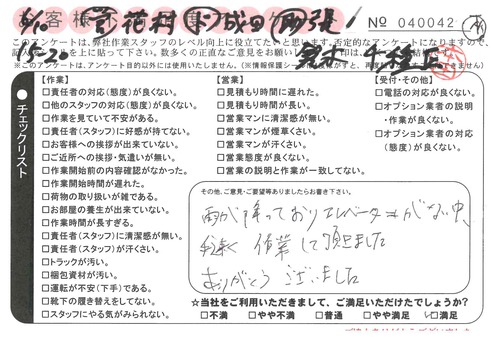 お客様
№ 040042
このアンケートは、弊社作業スタッフのレベル向上に役立てたいと思います。否定的なアンケートになりますので、
※このアンケートは、アンケート目的以外には使用いたしません。
●チェックリスト
【作業】
□責任者の対応(態度)が良くない。
□他のスタッフの対応(態度)が良くない。
□作業を見ていて不安がある。
□責任者(スタッフ)に好感が持てない。
□お客様への挨拶が出来ていない。
□ご近所への挨拶・気遣いが無い。
□作業開始前の内容確認がなかった。
□作業開始時間が遅れた。
□荷物の取り扱いが雑である。
□お部屋の養生が出来ていない。
□作業時間が長すぎる。
□責任者(スタッフ)に清潔感が無い。
□責任者(スタッフ)が汗くさい。
□トラックが汚い。
□梱包資材が汚い。
□運転が不安(下手)である。
□靴下の履き替えをしてない。
□スタッフにやる気がみられない。
【営業】
□見積もり時間に遅れた。
□見積もり時間が長い。
□営業マンに清潔感が無い。
□営業マンが煙草くさい。
□営業マンが汗くさい。
□営業態度が良くない。
□営業の説明と作業が一致してない。
【受付・その他】
□電話の対応が良くない。
□オプション業者の説明
・作業が良くない。
□オプション業者の対応
(態度)が良くない。
その他、ご意見・ご要望等ありましたらお書き下さい。
雨が降っておりエレベーターがない中、
手速く作業して頂きました
ありがとうございました
☆当社をご利用いただきまして、ご満足いただけたでしょうか?
□不満 □やや不満 □普通 □やや満足 ☑満足